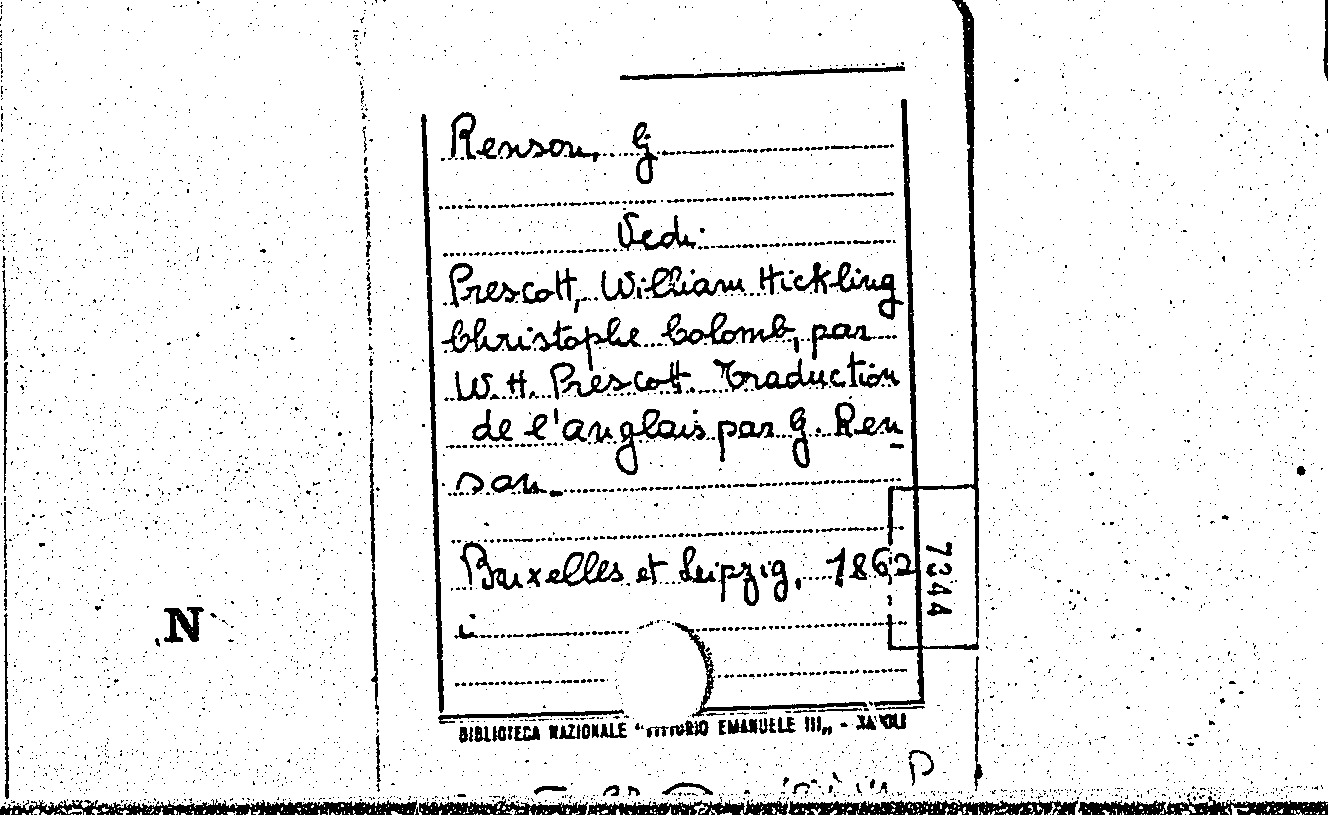 Renson, G
Vedi
Prescott, William Hickling
Christophe Colomb, par
W. H. Prescott. Traduction
de l'anglais par G. Ren-
son.
Bruxelles et Leipzig, 1862
i
7344
N
BIBLIOTECA NAZIONALE "VITTORIO EMANUELE III„ - NAPOLI
P